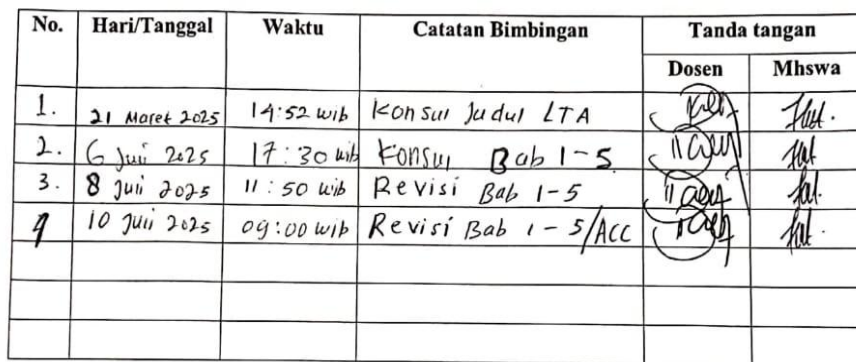 No. Hari/Tanggal Waktu Catatan Bimbingan Tanda tangan
Dosen Mhswa
1. 21 Maret 2025 14:52 wib Konsul Judul LTA
2. 6 Juli 2025 17:30 wib Konsul Bab 1-5
3. 8 Juli 2025 11:50 wib Revisi Bab 1-5
4 10 Juli 2025 09:00 wib Revisi Bab 1-5/ACC